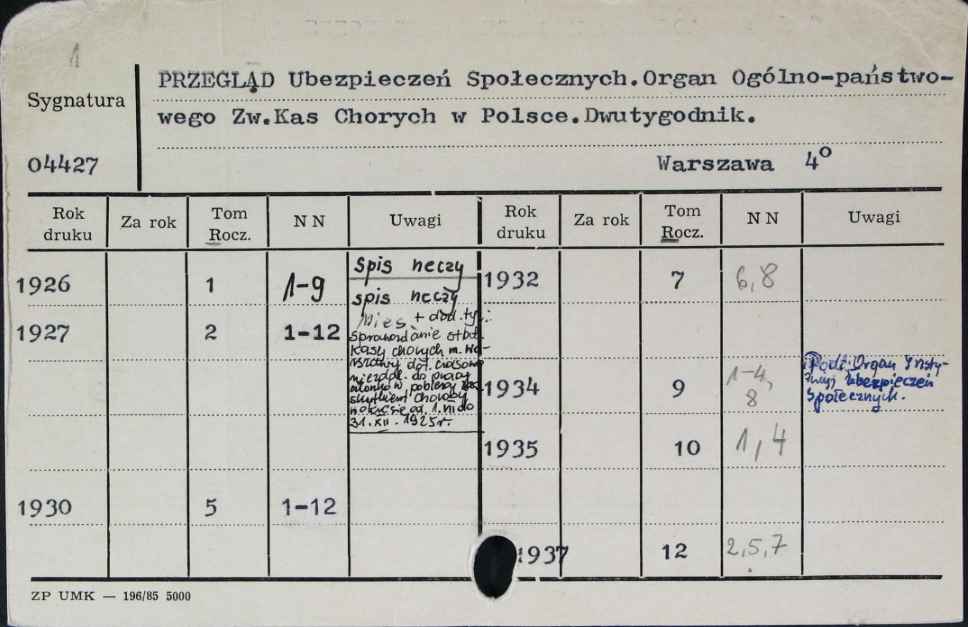 1
PRZEGLĄD Ubezpieczeń Społecznych.Organ Ogólno-państwo-
Sygnatura
wego Zw.Kas Chorych w Polsce.Dwutygodnik.
04427
Warszawa 4°
Rok druku Za rok Tom Rocz. NN Uwagi Rok druku Za rok Tom Rocz. NN Uwagi
1926 1 1-9 spis rzeczy
1927 2 1-12 spis rzeczy
Mies. + dod. tyt.:
Sprawozdanie
Kasy chorych m. Wa-
rszawy dot. czasowej
niezdol. do pracy
członków pobierz.
skutkiem choroby
w okresie od 1.
31.XII.1925r.
1930 5 1-12
1932 7 6,8
1934 9 1-4, 8 Podt: Organ Insty-
tucyj Ubezpieczeń
Społecznych.
1935 10 1,4
1937 12 2,5,7
ZP UMK — 196/85 5000